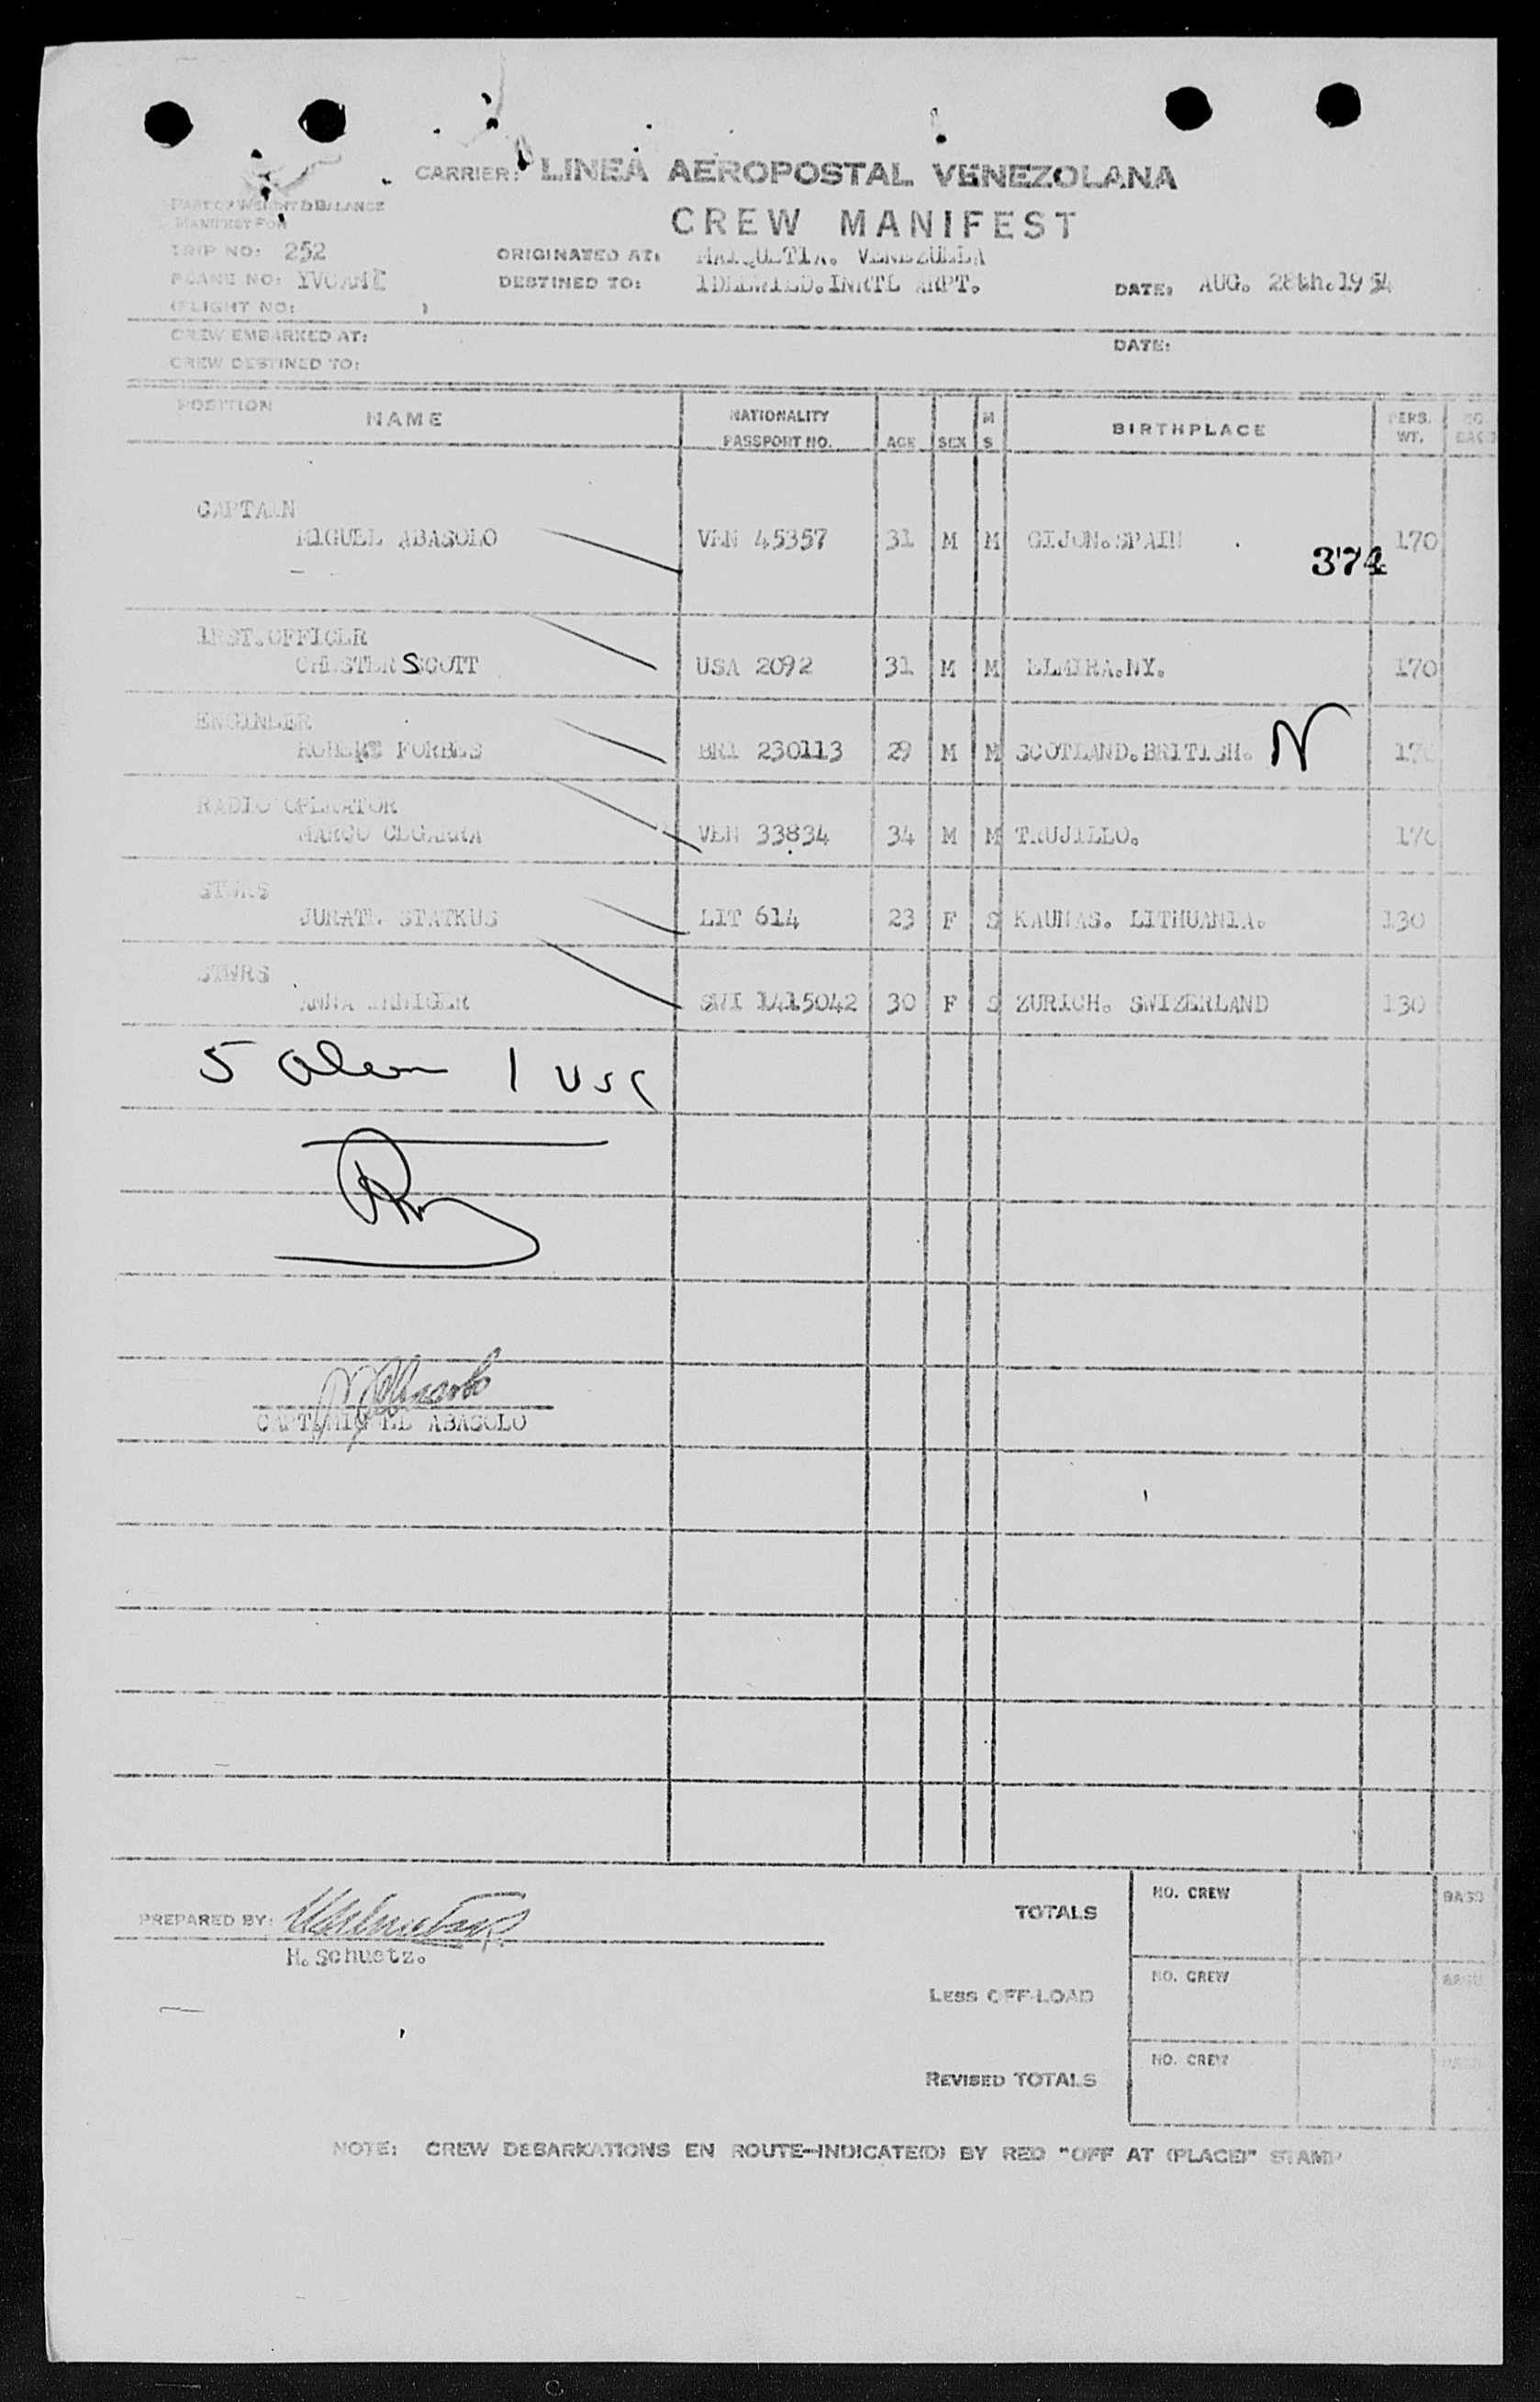 CARRIER: LINEA AEROPOSTAL VENEZOLANA
PART OF WEIGHT & BALANCE
MANIFEST FOR
CREW MANIFEST
TRIP NO: 252 ORIGINATED AT: MAIQUETIA. VENEZUELA
PLANE NO: DESTINED TO: IDLEWILD.INRTL ARPT. DATE: AUG. 28th.1954
(FLIGHT NO: )
CREW EMBARKED AT: DATE:
CREW DESTINED TO:
POSITION NAME NATIONALITY PASSPORT NO. AGE SEX M S BIRTHPLACE PERS. WT. NO.
CAPTAIN
MIGUEL ABASOLO VEN 45357 31 M M GIJON.SPAIN 170
374
1RST.OFFICER
CHESTER SCOTT USA 2092 31 M M ELMIRA.NY. 170
ENGINEER
ROBERT FORBES BRI 230113 29 M M SCOTLAND.BRITISH. N 170
RADIO OPERATOR
MARCO CEGARRA VEN 33834 34 M M TRUJILLO. 170
STWRS
JURATE STATKUS LIT 614 23 F S KAUNAS. LITHUANIA. 130
STWRS
ANNA SWI 1415042 30 F S ZURICH. SWIZERLAND 130
5 alien 1 USC
CAPT.MIGUEL ABASOLO
PREPARED BY:
H.Schuetz.
TOTALS NO. CREW
LESS OFF-LOAD NO. CREW
REVISED TOTALS NO. CREW
NOTE: CREW DEBARKATIONS EN ROUTE-INDICATE(D) BY RED "OFF AT (PLACE)" STAMP